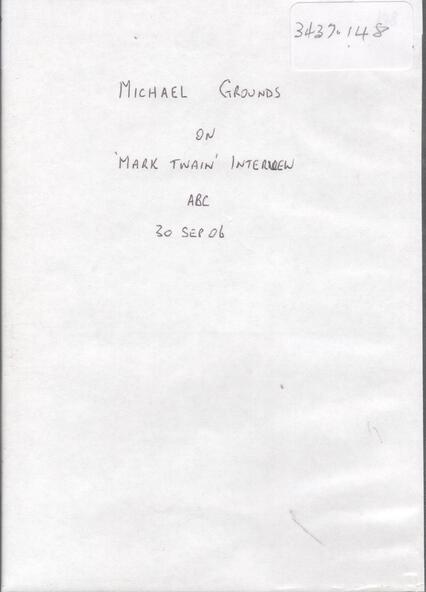 3437.148
MICHAEL GROUNDS
ON
'MARK TWAIN' INTERVIEW
ABC
30 SEP 06